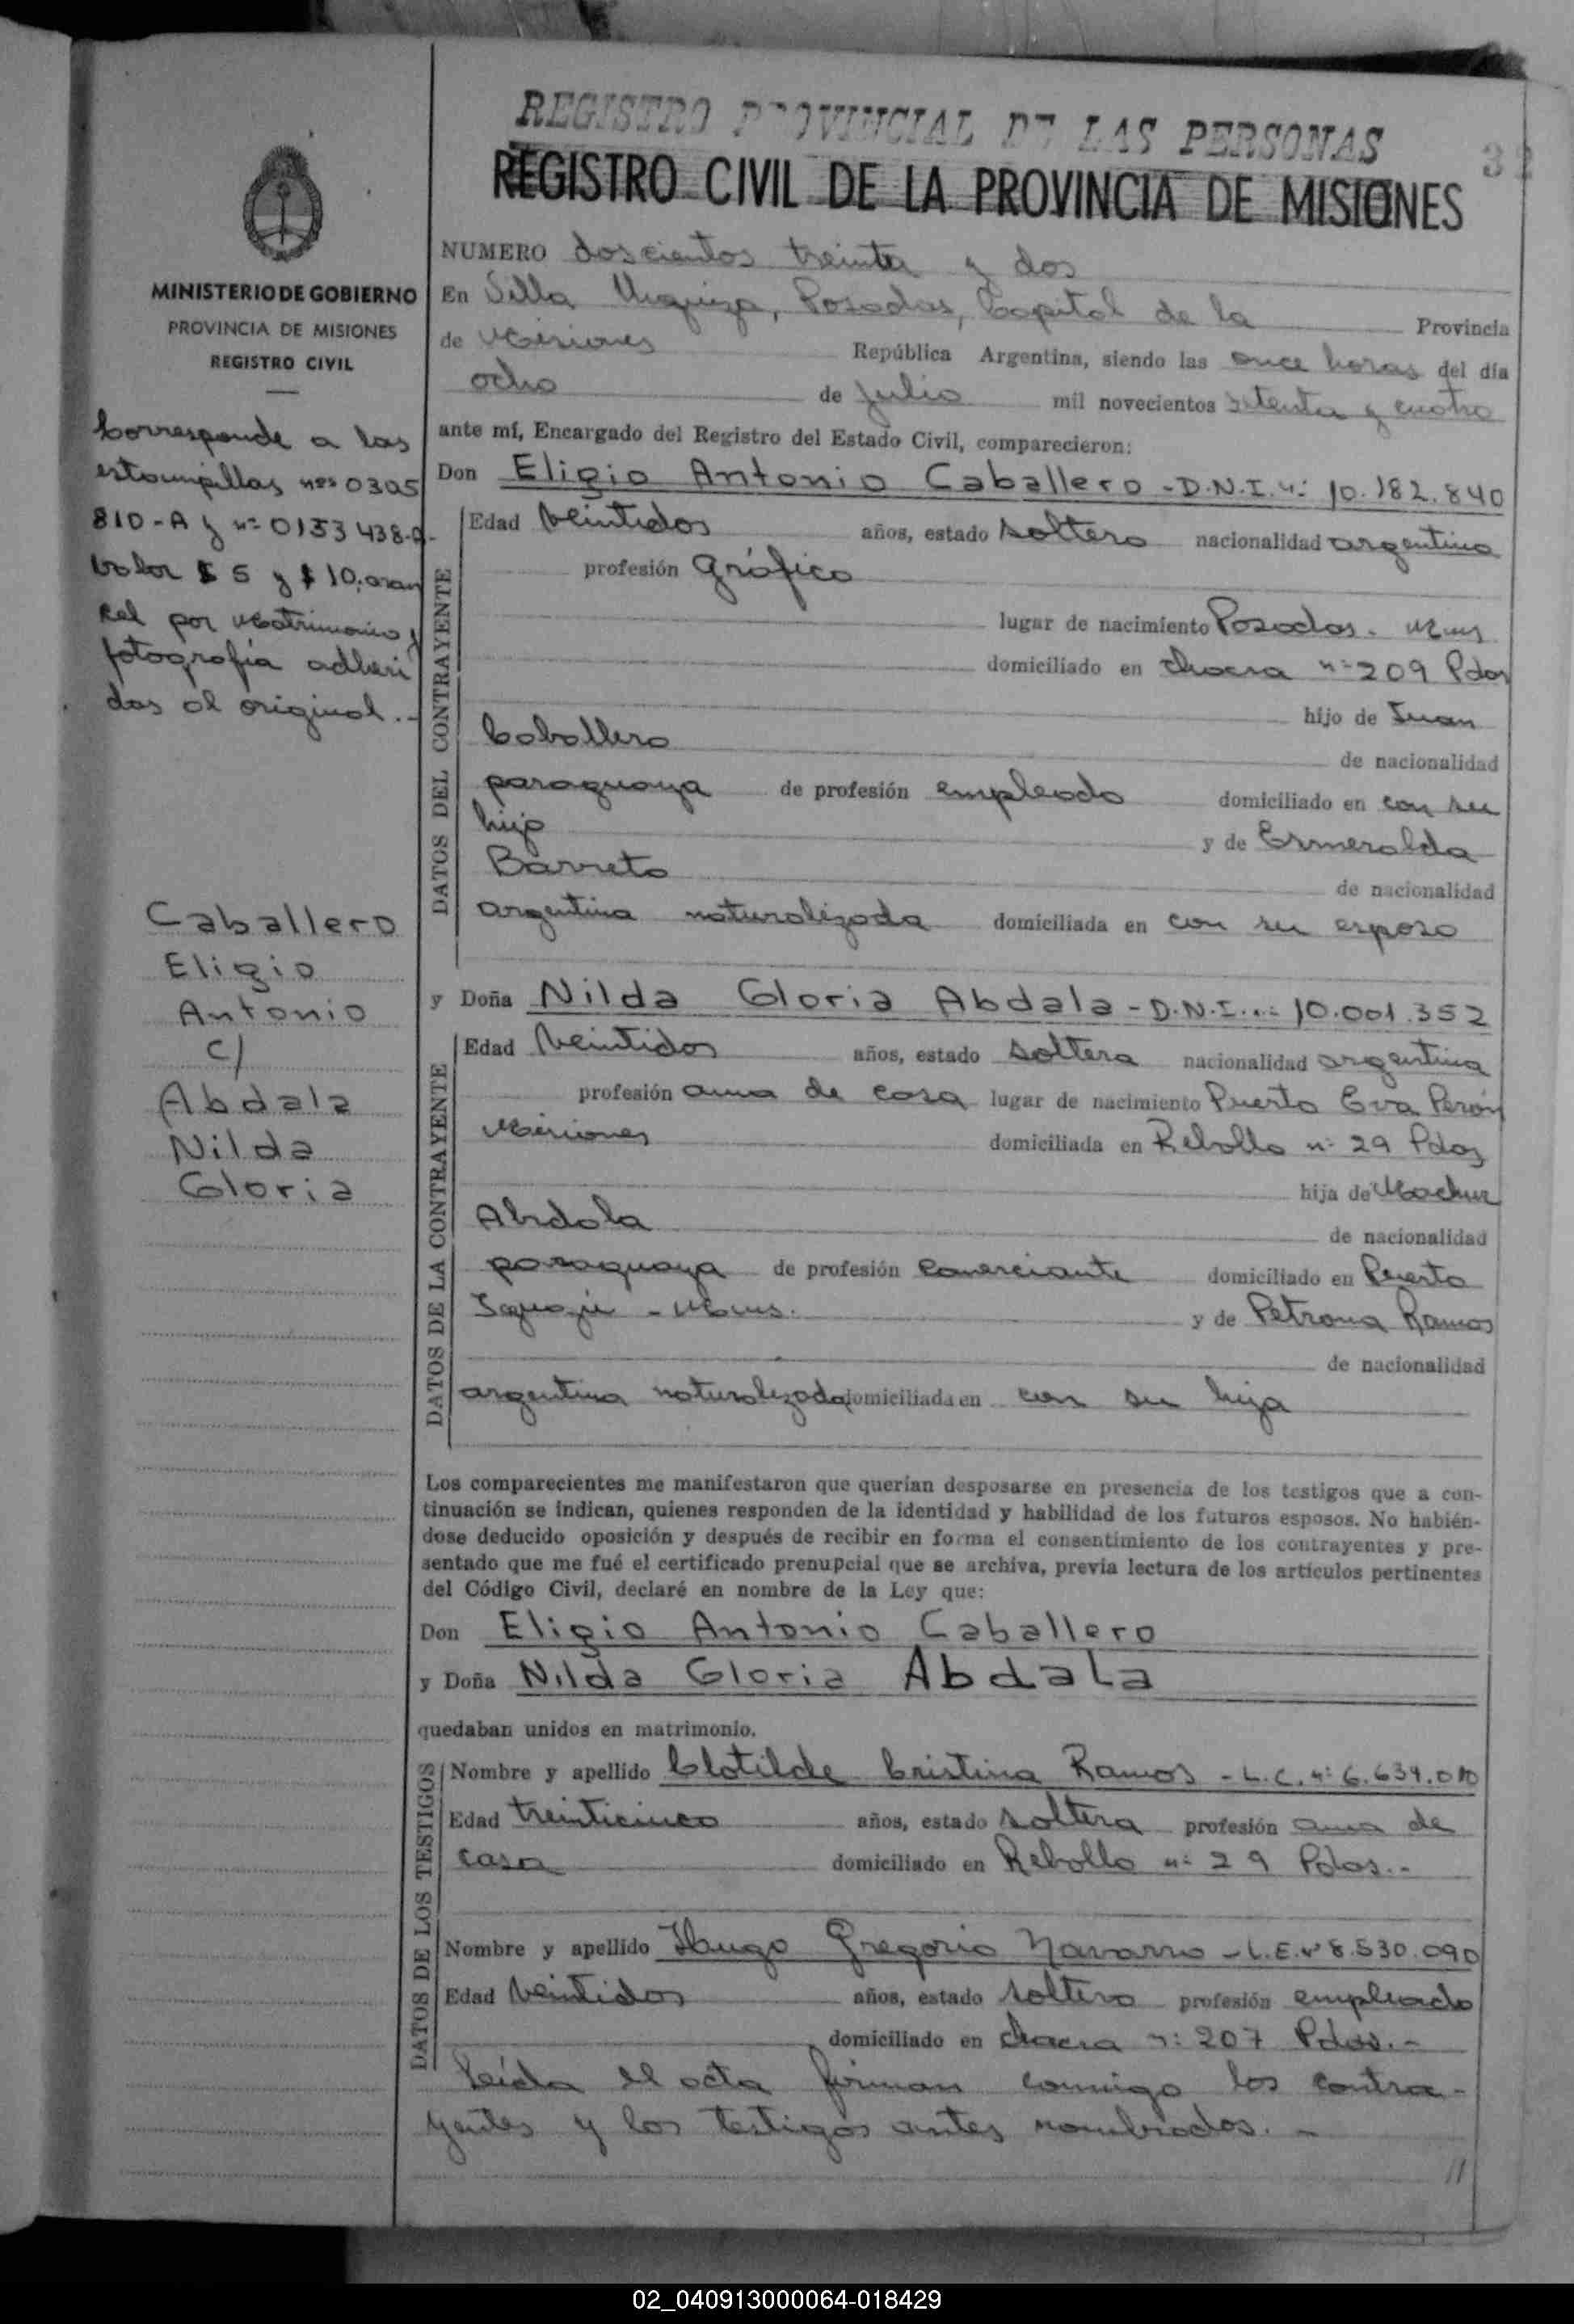 REGISTRO PROVINCIAL DE LAS PERSONAS
32
REGISTRO CIVIL DE LA PROVINCIA DE MISIONES
MINISTERIO DE GOBIERNO
PROVINCIA DE MISIONES
REGISTRO CIVIL
Corresponde a las
estampillas nos 0305
810-A y nº 0153438-A-
valor $ 5 y $ 10; aran
cel por Matrimonio y
fotografía adheri
das al original.-
Caballero
Eligio
Antonio
c/
Abdala
Nilda
Gloria
NUMERO doscientos treinta y dos
En Villa Urquiza, Posadas, Capital de la Provincia
de Misiones República Argentina, siendo las once horas del día
ocho de julio mil novecientos setenta y cuatro
ante mí, Encargado del Registro del Estado Civil, comparecieron:
Don Eligio Antonio Caballero - D.N.I. nº 10.182.840
DATOS DEL CONTRAYENTE
Edad veintidos años, estado soltero nacionalidad argentina
profesión gráfico
lugar de nacimiento Posadas. Mnes
domiciliado en chacra nº 209 Pdas
hijo de Juan
Caballero
de nacionalidad
paraguaya de profesión empleado domiciliado en con su
hijo y de Esmeralda
Barreto
de nacionalidad
argentina naturalizada domiciliada en con su esposo
y Doña Nilda Gloria Abdala - D.N.I. nº 10.001.352
DATOS DE LA CONTRAYENTE
Edad veintidos años, estado soltera nacionalidad argentina
profesión ama de casa lugar de nacimiento Puerto Eva Perón
Misiones domiciliada en Rebollo nº 29 Pdas
hija de
Abdala
de nacionalidad
paraguaya de profesión comerciante domiciliado en Puerto
Iguazú - Mnes. y de Petrona Ramos
de nacionalidad
argentina naturalizada domiciliada en con su hija
Los comparecientes me manifestaron que querían desposarse en presencia de los testigos que a con-
tinuación se indican, quienes responden de la identidad y habilidad de los futuros esposos. No habién-
dose deducido oposición y después de recibir en forma el consentimiento de los contrayentes y pre-
sentado que me fué el certificado prenupcial que se archiva, previa lectura de los artículos pertinentes
del Código Civil, declaré en nombre de la Ley que:
Don Eligio Antonio Caballero
y Doña Nilda Gloria Abdala
quedaban unidos en matrimonio.
DATOS DE LOS TESTIGOS
Nombre y apellido Clotilde Cristina Ramos - L.C. nº 6.639.010
Edad treinticinco años, estado soltera profesión ama de
casa domiciliado en Rebollo nº 29 Pdas.-
Nombre y apellido Hugo Gregorio Navarro - L.E. nº 8.530.090
Edad veintidos años, estado soltero profesión empleado
domiciliado en chacra nº 207 Pdas.-
Leída el acta firman conmigo los contra-
yentes y los testigos antes nombrados.-
//
02_040913000064-018429